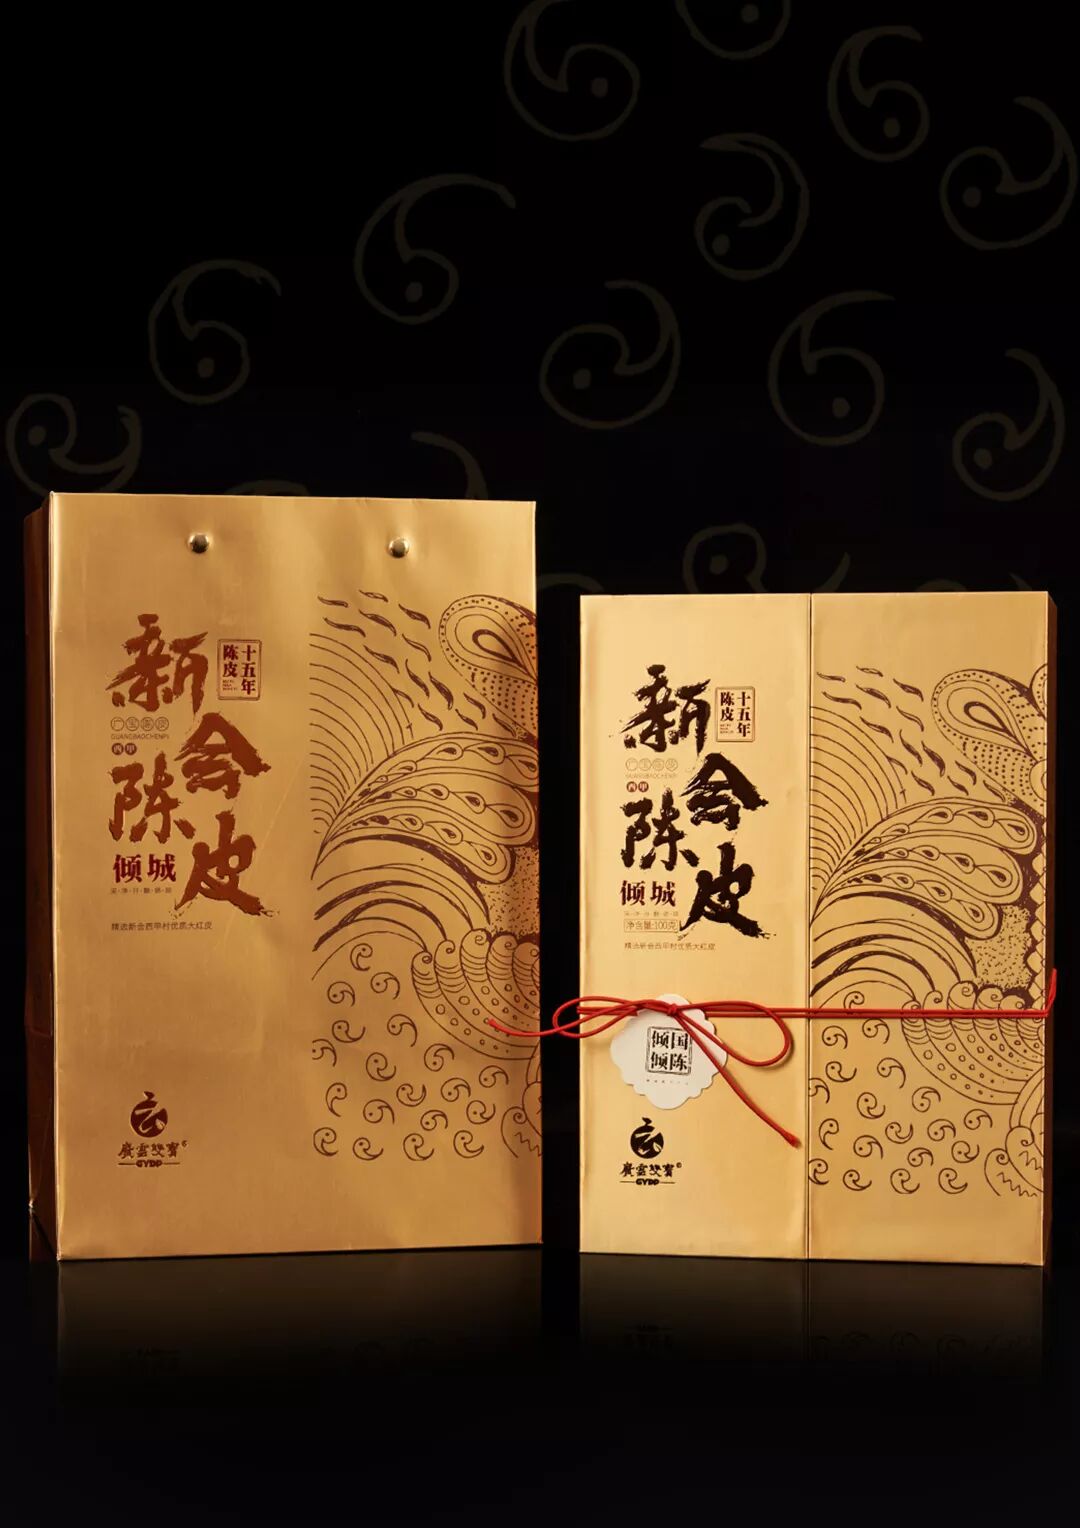 新会陈皮
十五年
陈皮
广宝陈皮
GUANGBAOCHENPI
西甲
倾城
精选新会西甲村优质大红皮
廣雲雙寶
GYDP
新会陈皮
十五年
陈皮
广宝陈皮
GUANGBAOCHENPI
西甲
倾城
净含量:100克
精选新会西甲村优质大红皮
倾国
倾陈
廣雲雙寶
GYDP